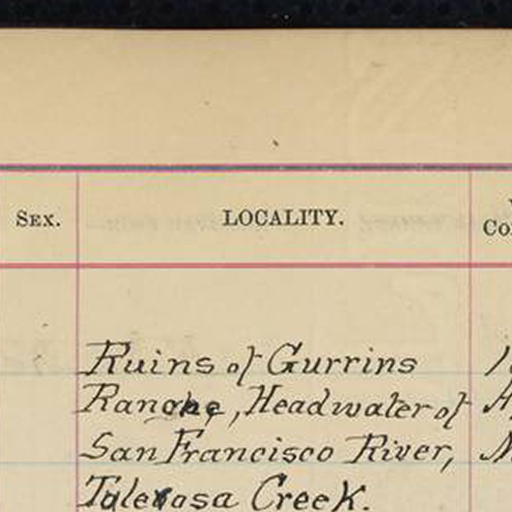 SEX.
LOCALITY.
Ruins of Gurrins
Ranche, Headwater of
San Francisco River,
Tulerosa Creek.